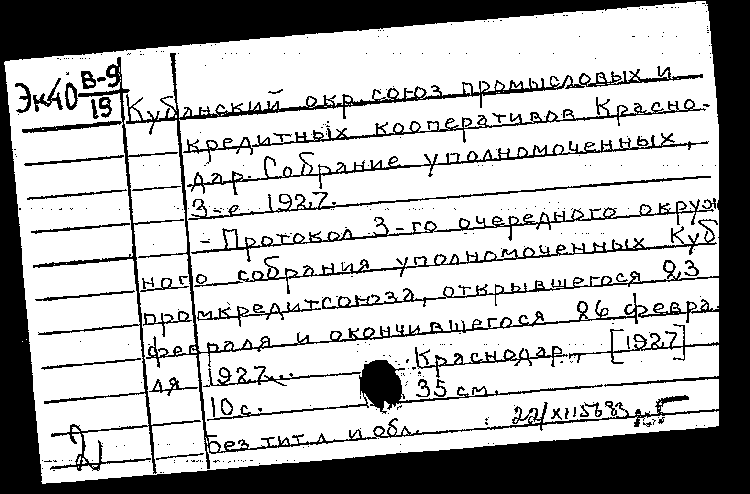 Эк40 В-9/19
Кубанский окр. союз промысловых и
кредитных кооперативов Красно-
дар. Собрание уполномоченных,
3-е. 1927.
- Протокол 3-го очередного окруж
ного собрания уполномоченных Куб
промкредитсоюза, открывшегося 23
февраля и окончившегося 26 февра-
ля 1927... Краснодар, [1927]
10 с. 35 см.
без тит. л и обл.
2